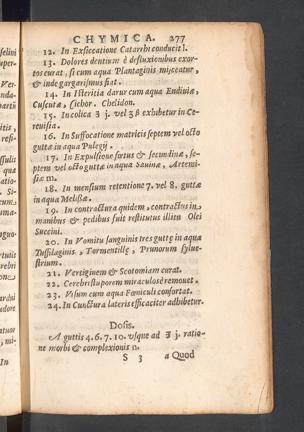 CHYMICA. 277
12. In Exsiccatione Catarrhi conducit l.
13. Dolores dentium è defluxionibus exor-
tos curat, si cum aqua Plantaginis misceatur,
& inde gargarismus fiat.
14. In Icteritia datur cum aqua Endiviæ,
Cuscutæ, Cichor. Chelidon.
15. In colica ℈ j. vel ʒß exhibetur in Ce-
revisia.
16. In Suffocatione matricis septem vel octo
guttæ in aqua Pulegij.
17. In Expulsione fœtus & secundinæ, se-
ptem vel octo guttæ in aqua Savinæ, Artemi-
siæ m.
18. In mensium retentione 7. vel 8. guttæ
in aqua Melissæ.
19. In contractura quidem, contractus in
manibus & pedibus fuit restitutus illitu Olei
Succini.
20. In Vomitu sanguinis tres guttę in aqua
Tussilaginis, Tormentillę, Prunorum sylve-
strium.
21. Vertiginem & Scotomiam curat.
22. Cerebri stuporem miraculosè removet.
23. Visum cum aqua Fœniculi confortat.
24. In Cunctura lateris efficaciter adhibetur.
Dosis.
A guttis 4. 6. 7. 10. usque ad ℈ j. ratio-
ne morbi & complexionis
S 3
a Quod